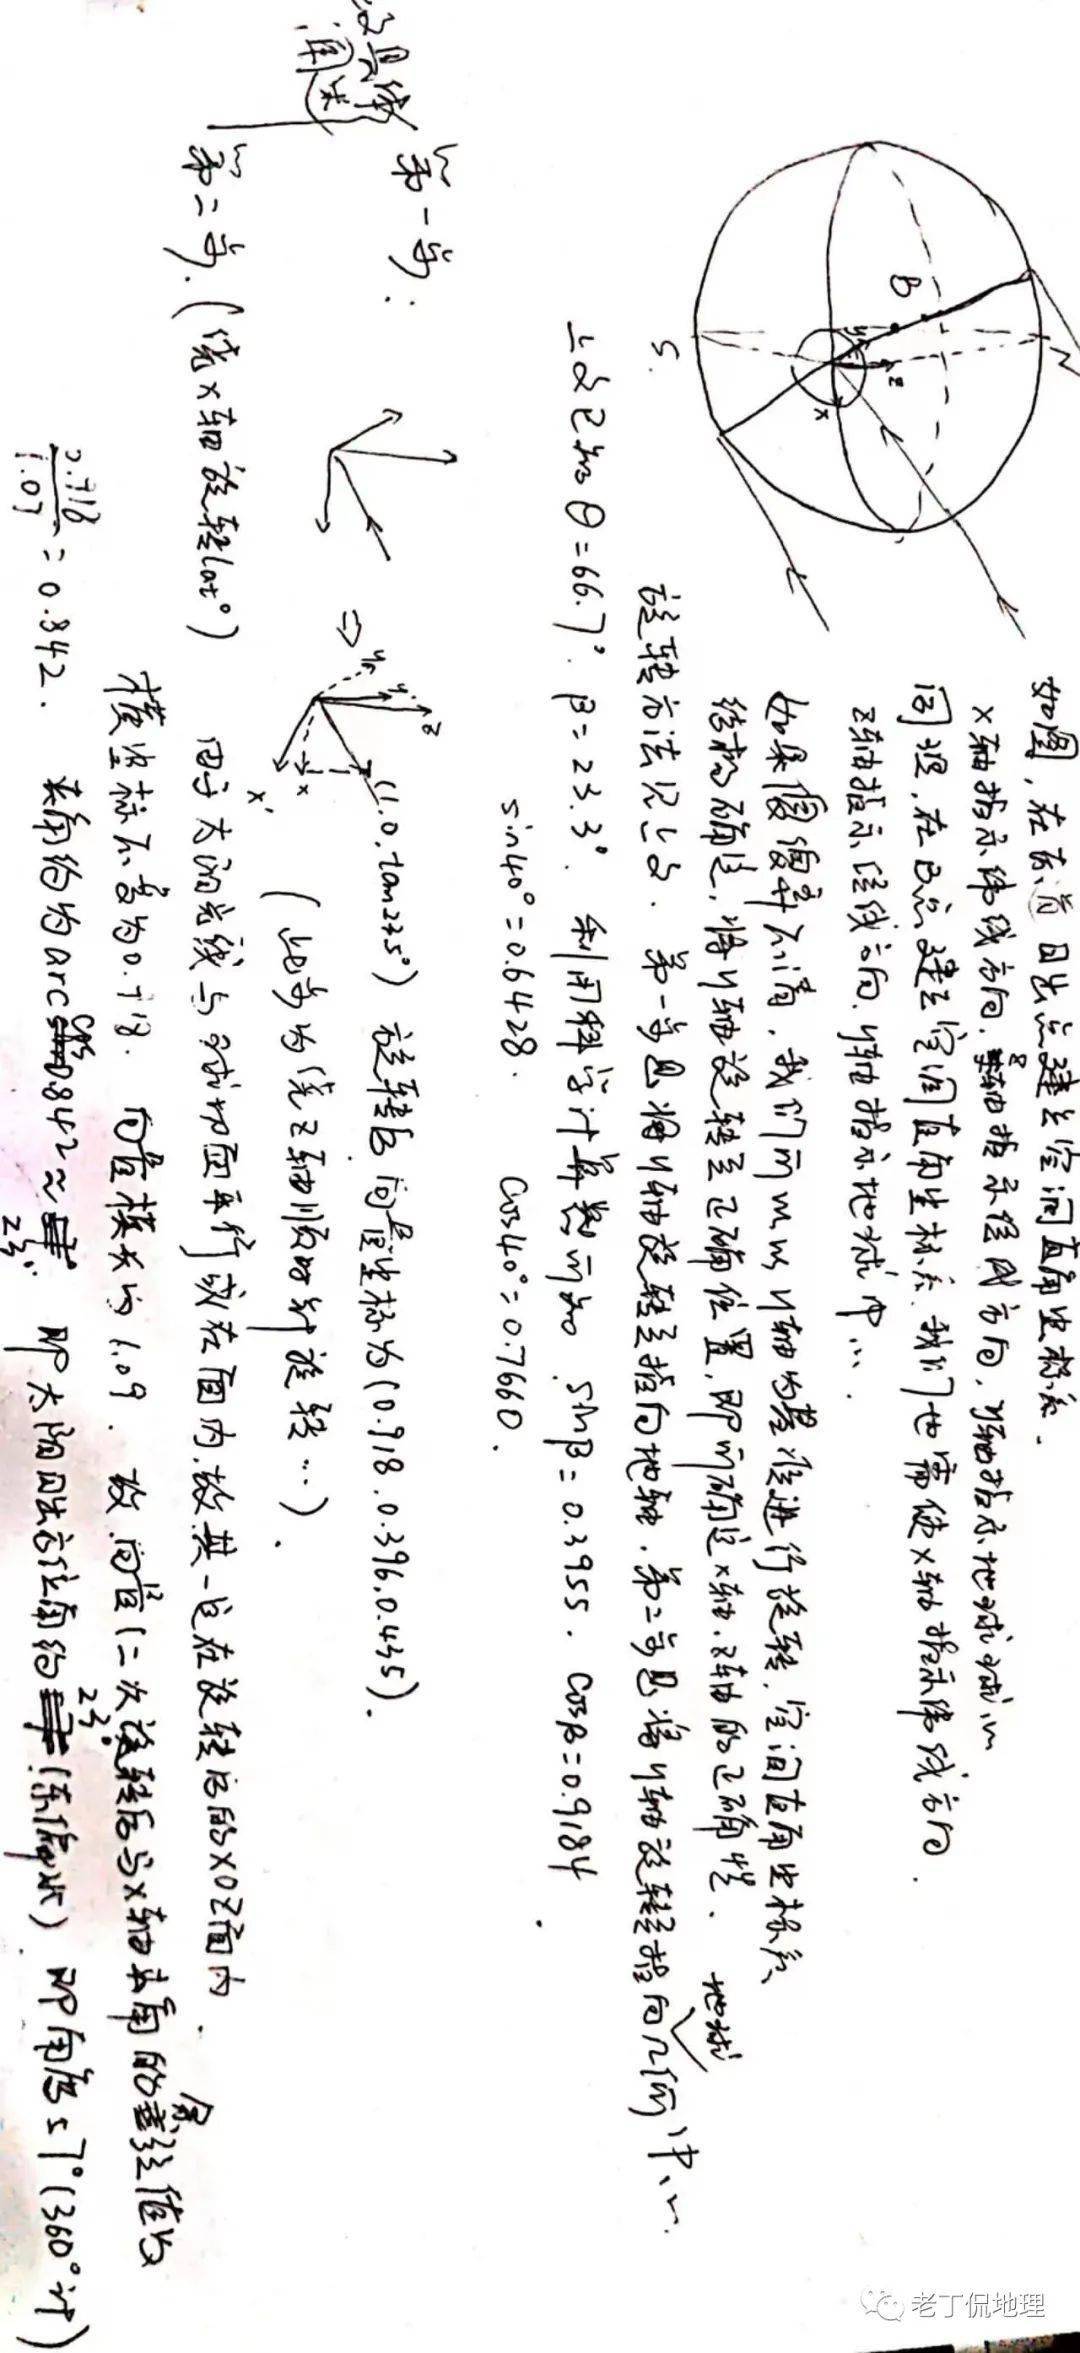 如图,在东首日出点建立空间直角坐标系.
x轴指示纬线方向,z轴指示经线方向,y轴指示地球球心
同理,在B点建立空间直角坐标系.我们也需使x轴指示纬线方向.
z轴指示经线方向,y轴指示地球中心.
如果傻傻弄不清,我们可以以y轴为基准进行旋转,空间直角坐标系
结构确定,将y轴旋转至正确位置,即可确定x轴,z轴的正确性.
旋转方法见上文.第一步是将y轴旋转至指向地轴,第二步是将y轴旋转至指向地球几何中心.
上文已知θ=66.7°.β=23.3°.利用科学计算器可知 sinβ=0.3955.cosβ=0.9184
sin40°=0.6428. cos40°=0.7660.
N
B
S
x
y
z
第一步:
(1.0.tan23.5°) 旋转后向量坐标为(0.918.0.396.0.435).
x
x'
y
z
(此步为绕z轴顺时针旋转…)
第二步.(绕x轴旋转lat°) 由于太阳光线与球切面平行或在面内,故其一定在旋转后的xOz面内.
横坐标不变为0.918. 向量模长为1.09. 故向量(二次旋转后与x轴夹角的余弦值为
1.09
=0.842. 夹角约为arccos0.842≈23° 即太阳日出方位角约23°(东偏北) 即角度57°(360°计)
老丁侃地理